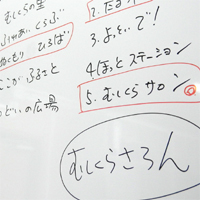 むしくらの里
ふれあい くらぶ
ぬくもり ひろば
ここが ふるさと
つどいの広場
2. だ
3. よっといで!
4 ほっとステーション
5. むしくらサロン
むしくらさろん